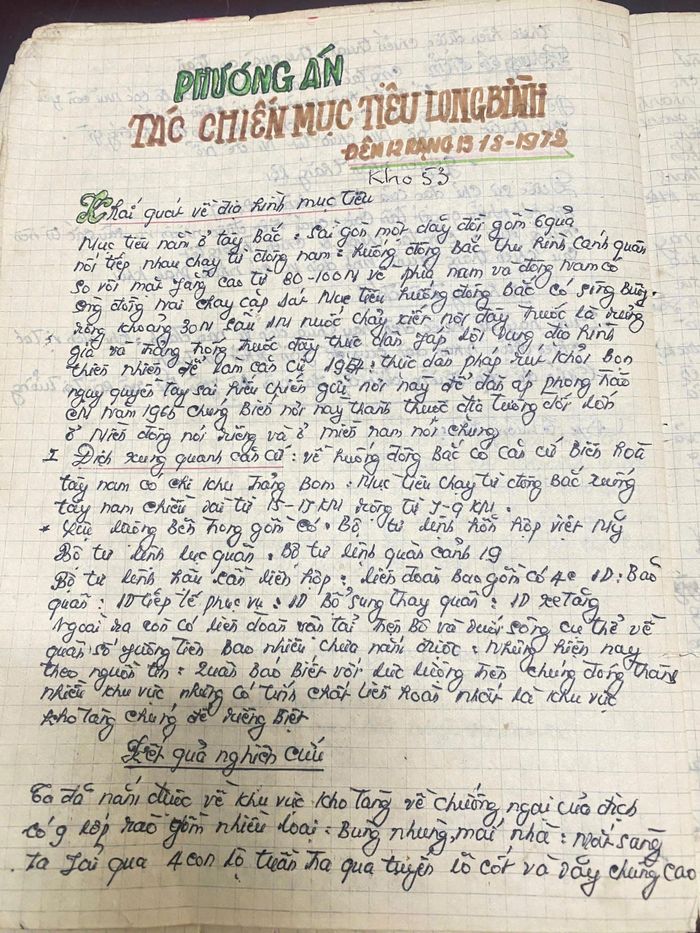 PHƯƠNG ÁN
TÁC CHIẾN MỤC TIÊU LONG BÌNH
ĐÊM 12 RẠNG 13-12-1972
Kho 53
Khái quát về địa hình mục tiêu
Mục tiêu nằm ở tây Bắc: Sài gòn một dãy đồi gồm 6 quả
nối tiếp nhau chạy từ đông nam: hướng đông Bắc
so với mặt bằng cao từ 80-100M về phía nam và đông Nam có
sông đồng nai chạy cập sát Mục tiêu hướng đông Bắc có sông Buông
rộng khoảng 30M sâu nước chảy xiết nơi đây trước là rừng
già và trảng trống trước đây thực dân Pháp lợi dụng địa hình
thiên nhiên để làm căn cứ 1954: thực dân pháp rút khỏi Bọn
ngụy quyền tay sai hiếu chiến giữ nơi này để đàn áp phong trào
CM Năm 1965 chúng Biến nơi này thành tương đối lớn
ở Miền đông nói riêng và ở miền nam nói chung
I Địch xung quanh căn cứ: về hướng đông Bắc có căn cứ Biên Hoà
tây nam có chi khu Trảng Bom: Mục tiêu chạy từ đông Bắc xuống
tây nam chiều dài từ 15-17 KM rộng từ 7-9 KM.
* Lực lượng Bên trong gồm có: Bộ tư lệnh hỗn hợp việt Mỹ
Bộ tư lệnh lục quân: Bộ tư lệnh quân cảnh 19
Bộ tư lệnh hậu cần liên hợp: liên đoàn Bao gồm có 4C 1D: Bảo
quản: 1D tiếp tế phục vụ: 1D Bổ sung thay quân: 1D xe tăng
Ngoài ra còn có liên đoàn vận tải trên Bộ và dưới sông cụ thể về
quân số phương tiện Bao nhiêu chưa nắm được: Nhưng hiện nay
theo nguồn tin: Quân Báo Biết với lực lượng trên chúng đóng thành
nhiều khu vực nhưng có tính chất liên hoàn nhất là khu vực
kho tàng chúng để riêng Biệt
Kết quả nghiên cứu
Ta đã nắm được về khu vực kho tàng về chướng ngại của địch
có 9 lớp rào gồm nhiều loại: Bùng nhùng, mái nhà:
ta phải qua 4 con lộ tuần tra qua tuyến lô cốt và dãy chúng cao